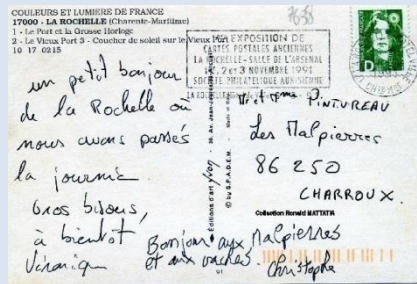 COULEURS ET LUMIERE DE FRANCE
17000 - LA ROCHELLE (Charente-Maritime)
1 - Le Port et la Grosse Horloge
2 - Le Vieux Port 3 - Coucher de soleil sur le Vieux Port
10 17 0215
7658
EXPOSITION DE
CARTES POSTALES ANCIENNES
LA ROCHELLE - SALLE DE L'ARSENAL
1, 2 et 3 NOVEMBRE 1991
D
un petit bonjour
de la Rochelle où
nous avons passés
la journée
Gros bisous,
à bientôt
Véronique
Bonjour aux Malpierres
et aux vaches. Christophe
Editions d'art
© by S.P.A.D.E.M.
M et Mme PINTUREAU
Les Malpierres
86 250
CHARROUX.
Collection Ronald MATTATIA